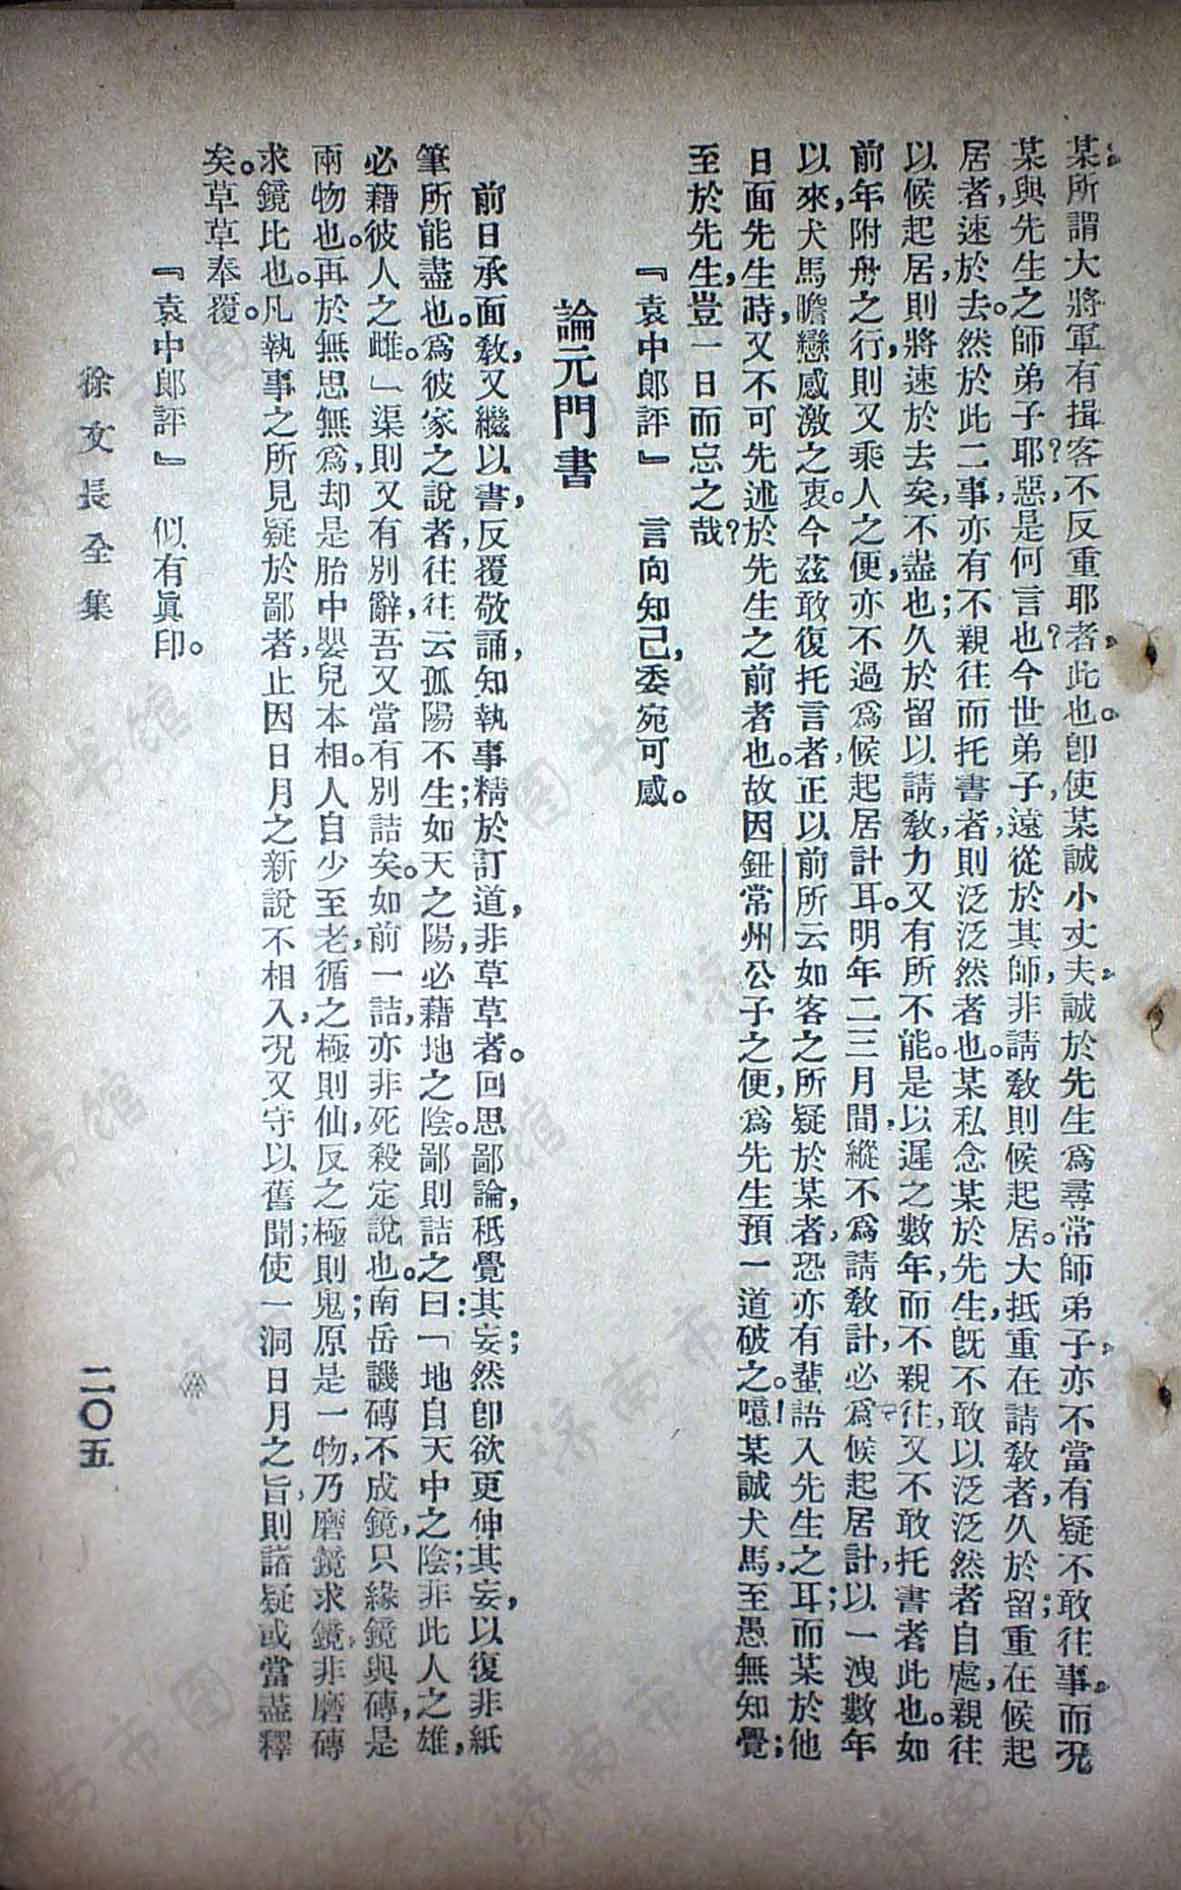 某所謂大將軍有揖客不反重耶者此也。卽使某誠小丈夫誠於先生爲尋常師弟子亦不當有疑不敢往事而況
某與先生之師弟子耶？惡是何言也？今世弟子，遠從於其師，非請敎則候起居。大抵重在請敎者，久於留；重在候起
居者，速於去。然於此二事，亦有不親往而托書者，則泛泛然者也。某私念某於先生，旣不敢以泛泛然者自處，親往
以候起居，則將速於去矣，不盡也；久於留以請敎，力又有所不能。是以遲之數年，而不親往，又不敢托書者此也。如
前年附舟之行，則又乘人之便，亦不過爲候起居計耳。明年二三月間，縱不爲請敎計，必爲候起居計，以一洩數年
以來，犬馬瞻戀感激之衷。今茲敢復托言者，正以前所云如客之所疑於某者，恐亦有蜚語入先生之耳；而某於他
日面先生時，又不可先述於先生之前者也。故因鈕常州公子之便，爲先生預一道破之。噫！某誠犬馬，至愚無知覺；
至於先生，豈一日而忘之哉？
『袁中郎評』　言向知己，委宛可感。
論元門書
前日承面敎，又繼以書，反覆敬誦，知執事精於訂道，非草草者。回思鄙論，秪覺其妄；然卽欲更伸其妄，以復非紙
筆所能盡也。爲彼家之說者，往往云孤陽不生；如天之陽，必藉地之陰。鄙則詰之曰：「地自天中之陰；非此人之雄，
必藉彼人之雌。」渠則又有別辭，吾又當有別詰矣。如前一詰，亦非死殺定說也。南岳譏磚不成鏡，只緣鏡與磚，是
兩物也。再於無思無爲，却是胎中嬰兒本相。人自少至老，循之極則仙，反之極則鬼；原是一物，乃磨鏡求鏡，非磨磚
求鏡比也。凡執事之所見疑於鄙者，止因日月之新說不相入，況又守以舊聞；使一洞日月之旨，則諸疑或當盡釋
矣。草草奉覆。
『袁中郎評』　似有眞印。
徐文長全集
二〇五